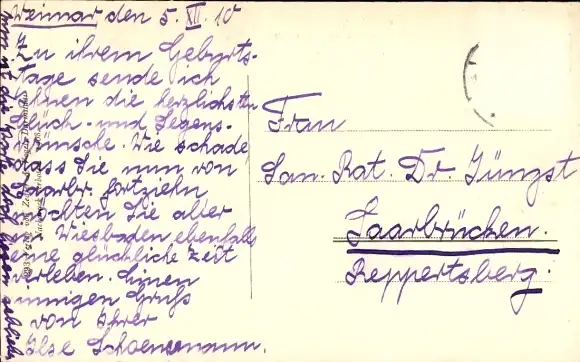 Weimar den 5. XII. 10
Zu ihrem Geburts-
tage sende ich
Ihnen die herzlichsten
Glück- und Segens-
wünsche. Wie schade
dass Sie nun von
Saarbr. fortziehn
Möchten Sie aber
in Wiesbaden ebenfalls
eine glückliche Zeit
verleben. Einen
innigen Gruß
von Ihrer
Ilse Schoenemann.
Frau
San. Rat. Dr. Jüngst
Saarbrücken.
Reppertsberg.